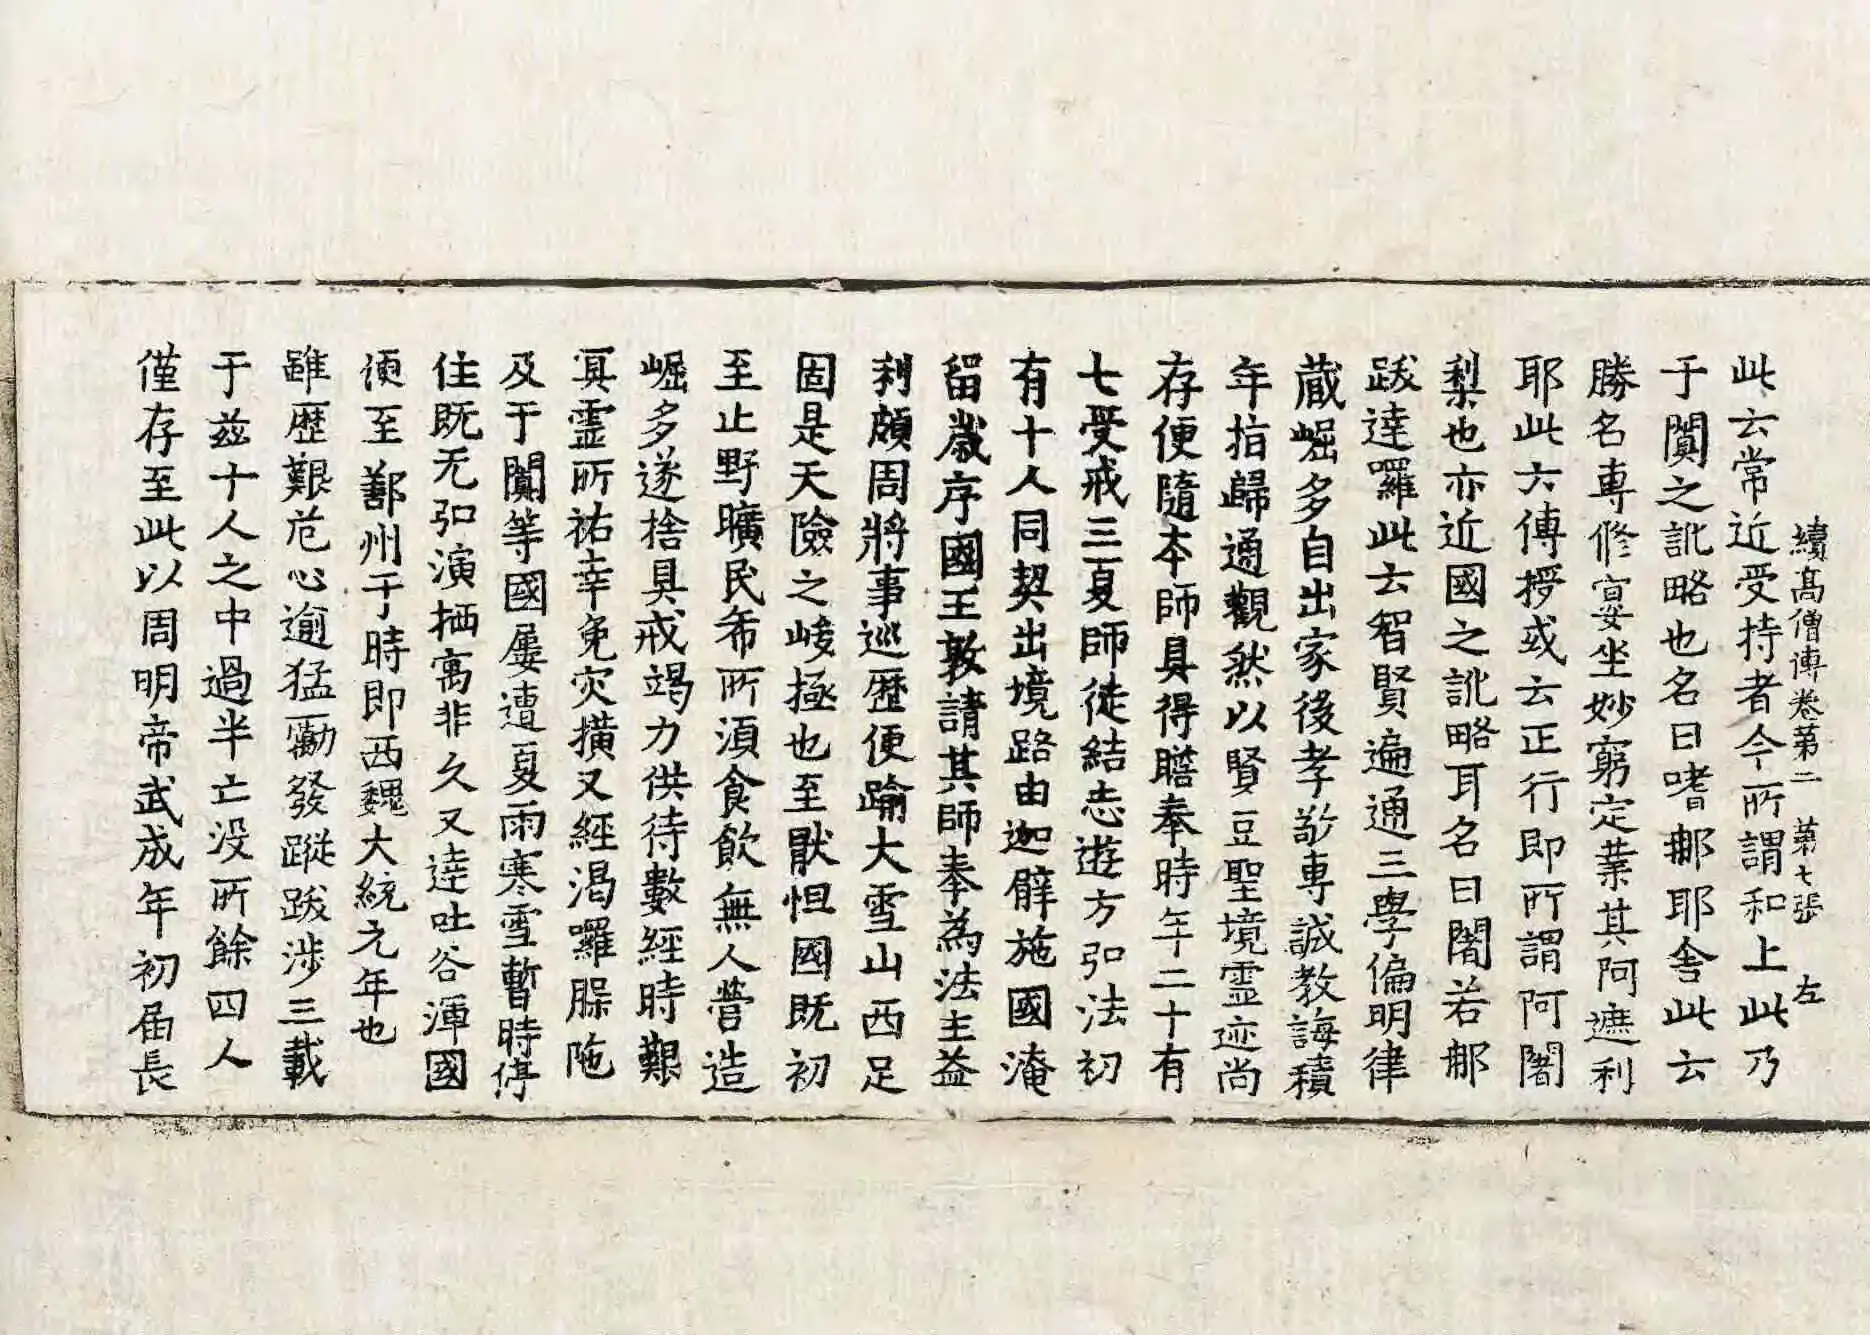 續高僧傳卷第二　第七張　左
此云常近受持者今所謂和上此乃
于闐之訛略也名曰嗜那耶舍此云
勝名専修宴坐妙窮定業其阿遮利
耶此云傳授或云正行即所謂阿闍
梨也亦近國之訛略耳名曰闍若那
跋達囉此云智賢遍通三學偏明律
蔵崛多自出家後孝敬専誠教誨積
年指歸通觀然以賢豆聖境霊迹尚
存便隨本師具得瞻奉時年二十有
七受戒三夏師徒結志遊方弘法初
有十人同契出境路由迦臂施國淹
留歲序國王敦請其師奉為法主益
利頗周將事巡歴便踰大雪山西足
固是天險之峻極也至猒怛國既初
至止野曠民希所湏食飲無人營造
崛多遂捨具戒竭力供待數經時艱
冥霊所祐幸免灾横又經渴囉腂陁
及于闐等國屡遭夏雨寒雪暫時停
住既无弘演栖寓非久又達吐谷渾國
便至鄯州于時即西魏大統元年也
雖歴艱危心逾猛勵發蹤跋涉三載
于兹十人之中過半亡没所餘四人
僅存至此以周明帝武成年初届長